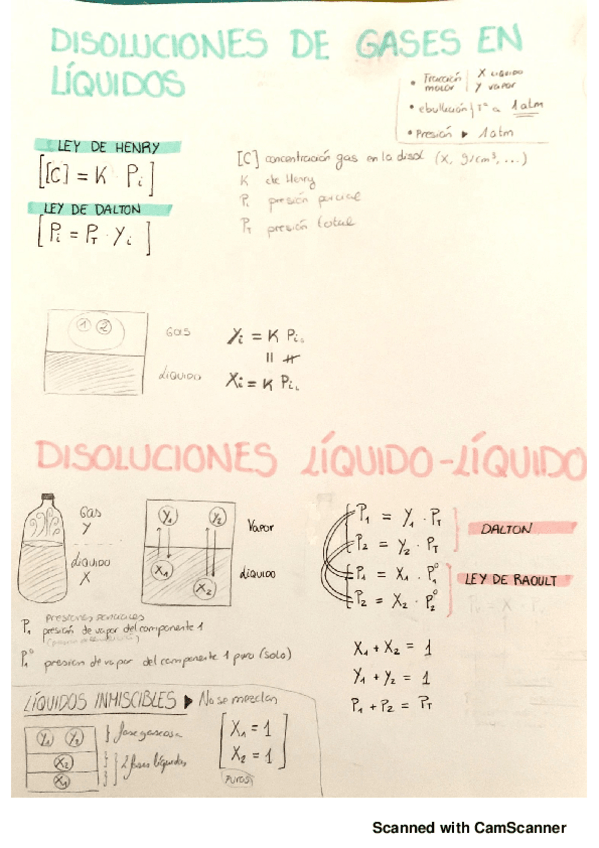 DISOLUCIONES DE GASES EN
LÍQUIDOS
• Fracción molar | X líquido
Y vapor
• ebullición | Tº a 1 atm
• Presión ▶ 1 atm
LEY DE HENRY
[[C] = K · Pi]
LEY DE DALTON
[Pi = PT · Yi]
[C] concentración gas en la disol (X, g/cm³, ...)
K de Henry
Pi presión parcial
PT presión total
1 2
GAS
LÍQUIDO
Yi = K Pi
Xi = K Pi
DISOLUCIONES LÍQUIDO-LÍQUIDO
Gas
Y
Líquido
X
Y1 Y2
Vapor
X1
X2
Líquido
P1 = Y1 · PT
P2 = Y2 · PT
DALTON
P1 = X1 · P1°
P2 = X2 · P2°
LEY DE RAOULT
Presiones parciales
P1 presión de vapor del componente 1
P1° presion de vapor del componente 1 puro (solo)
X1 + X2 = 1
Y1 + Y2 = 1
P1 + P2 = PT
LÍQUIDOS INMISCIBLES ▶ No se mezclan
Y1 Y2
fase gaseosa
X2
X1
2 fases líquidas
X1 = 1
X2 = 1
PUROS
Scanned with CamScanner